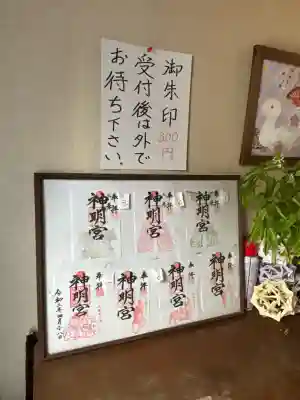 御朱印
300円
受付後は外で
お待ち下さい。
奉拝
神明宮
奉拝
神明宮
奉拝
神明宮
奉拝
神明宮
奉拝
神明宮
奉拝
神明宮
奉拝
神明宮